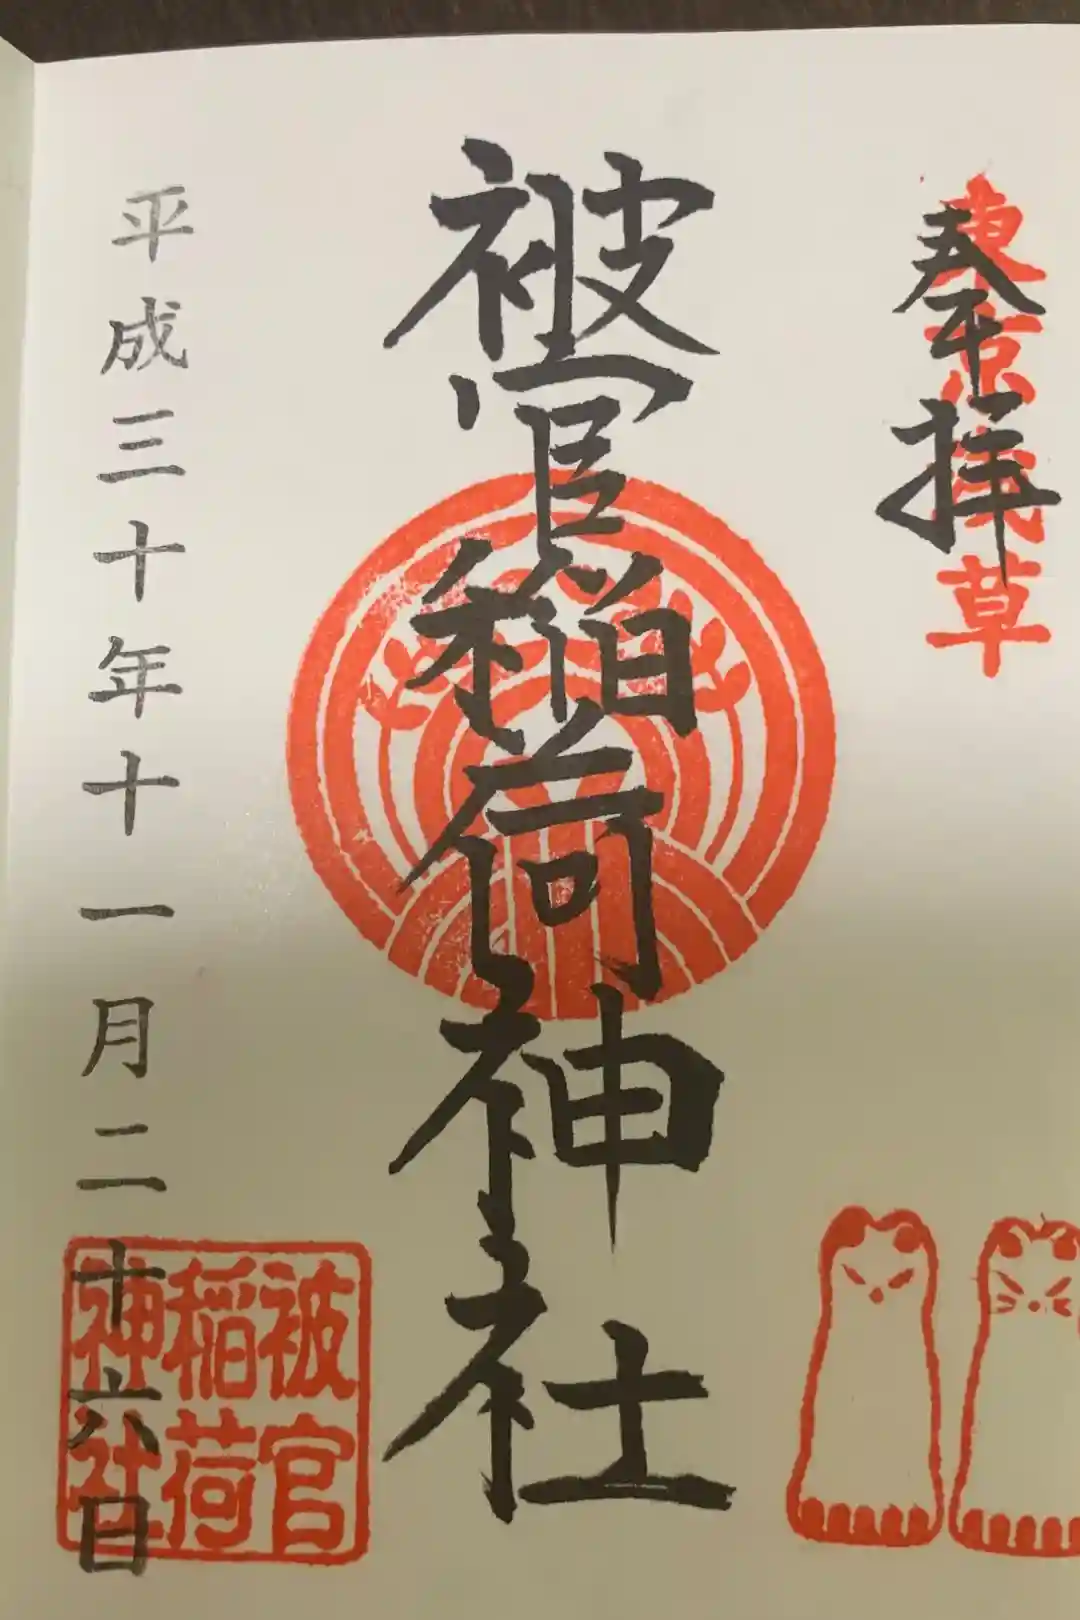 奉拝
東京浅草
被官稲荷神社
平成三十年十一月二十六日
被官
稲荷
神社